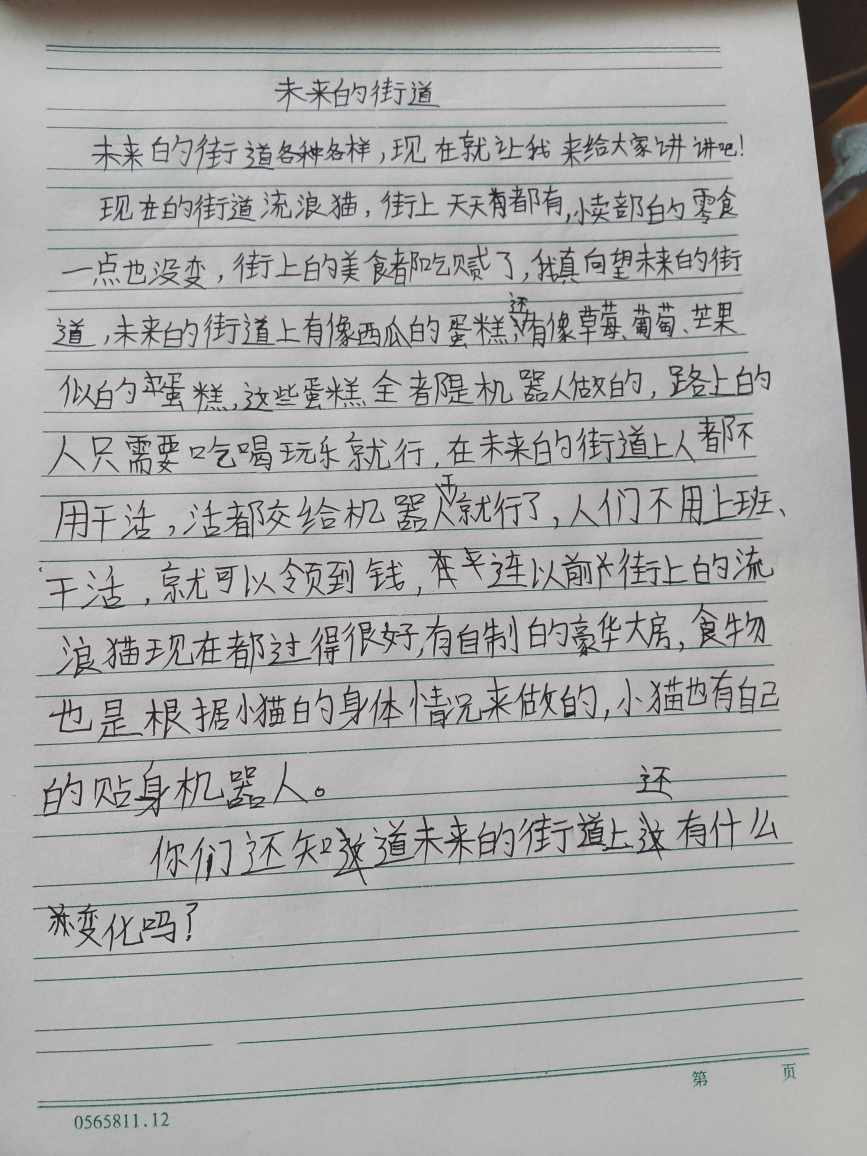 未来的街道
未来的街道各种各样，现在就让我来给大家讲讲吧！
现在的街道流浪猫，街上天天都有，小卖部的零食
一点也没变，街上的美食都吃腻了，我真向望未来的街
道，未来的街道上有像西瓜的蛋糕，还有像草莓、葡萄、芒果
似的蛋糕，这些蛋糕全都是机器人做的，路上的
人只需要吃喝玩乐就行，在未来的街道上人都不
用干活，活都交给机器人干就行了，人们不用上班、
干活，就可以领到钱，连以前街上的流
浪猫现在都过得很好，有自制的豪华大房，食物
也是根据小猫的身体情况来做的，小猫也有自己
的贴身机器人。
你们还知道未来的街道上还有什么
变化吗？
第 页
0565811.12